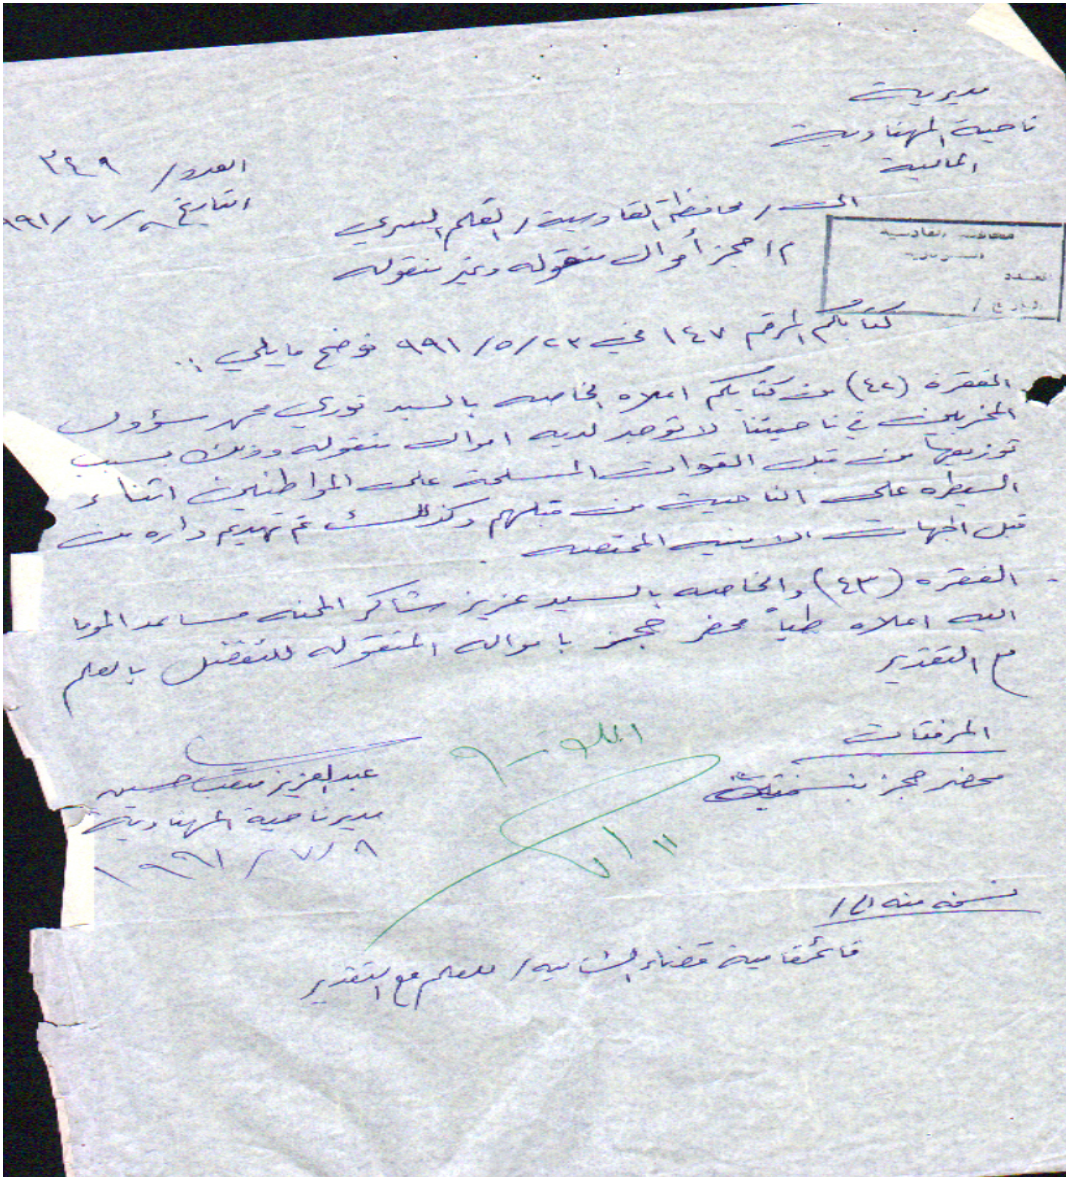 مديرية
ناحية المهناوية
المالية
العدد / ٣٤٩
التاريخ ٨ / ٧ / ٩٩١
الى / محافظة القادسية / القلم السري
م / حجز أموال منقوله وغير منقوله
محافظة القادسية
العدد
التاريخ /
كتابكم المرقم ١٤٧ في ٢٣ / ٥ / ٩٩١ نوضح مايلي :.
الفقرة (٤٢) من كتابكم اعلاه الخاصه بالسيد نوري محمد سؤول
المخربين في ناحيتنا لا توجد لديه اموال منقوله وذلك بسبب
توزيعها من قبل القوات المسلحة على المواطنين اثناء
السيطره على الناحية من قبلهم وكذلك تم تهديم داره من
قبل الجهات الامنيه المختصه .
الفقره (٤٣) والخاصه بالسيد عزيز شاكر المحنه مساعد الموما
اليه اعلاه طياً محضر حجز باموالـه المنقوله للتفضل بالعلم
مع التقدير
المرفقات
محضر حجز بنسختين
عبدالعزيز متعب حسين
مدير ناحية المهناوية
١٩٩١ / ٧ / ٨
١١ / ٧
نسخه منه الى /
قائمقامية قضاء الشاميه / للعلم مع التقدير